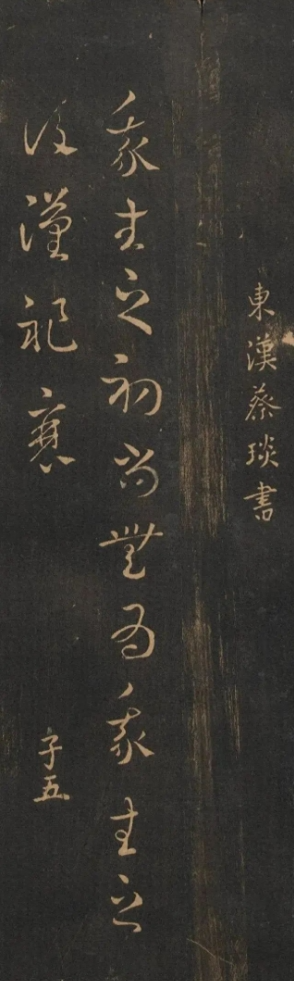 東漢蔡琰書
我生之初尚無為我生之
後漢祀衰
子五